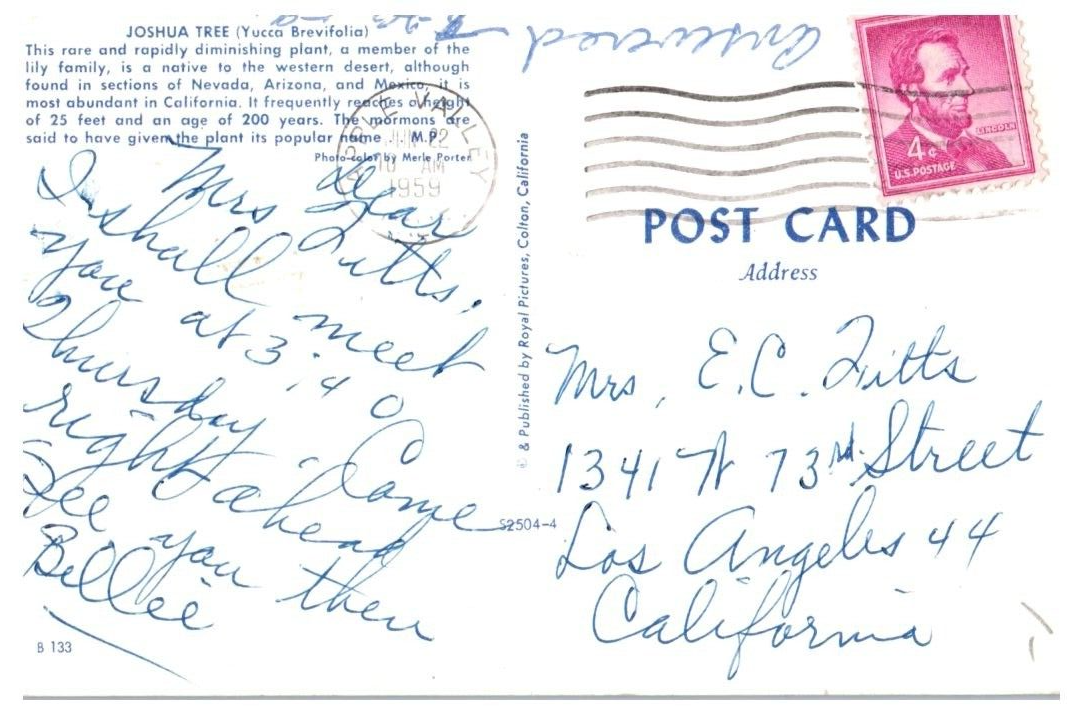 JOSHUA TREE (Yucca Brevifolia)
This rare and rapidly diminishing plant, a member of the
lily family, is a native to the western desert, although
found in sections of Nevada, Arizona, and Mexico, it is
most abundant in California. It frequently reaches a height
of 25 feet and an age of 200 years. The mormons are
said to have given the plant its popular name. M.P.
Photo-color by Merle Porter
dear
Mrs Fitts,
I shall meet
you at 3:40
Thursday Come
right ahead
See you then
Billee
B 133
© & Published by Royal Pictures, Colton, California
S2504-4
Answered
VALLEY
JUN 22
10 AM
1959
LINCOLN
4¢
U.S. POSTAGE
POST CARD
Address
Mrs. E.C. Fitts
1341 W 73rd Street
Los Angeles 44
California